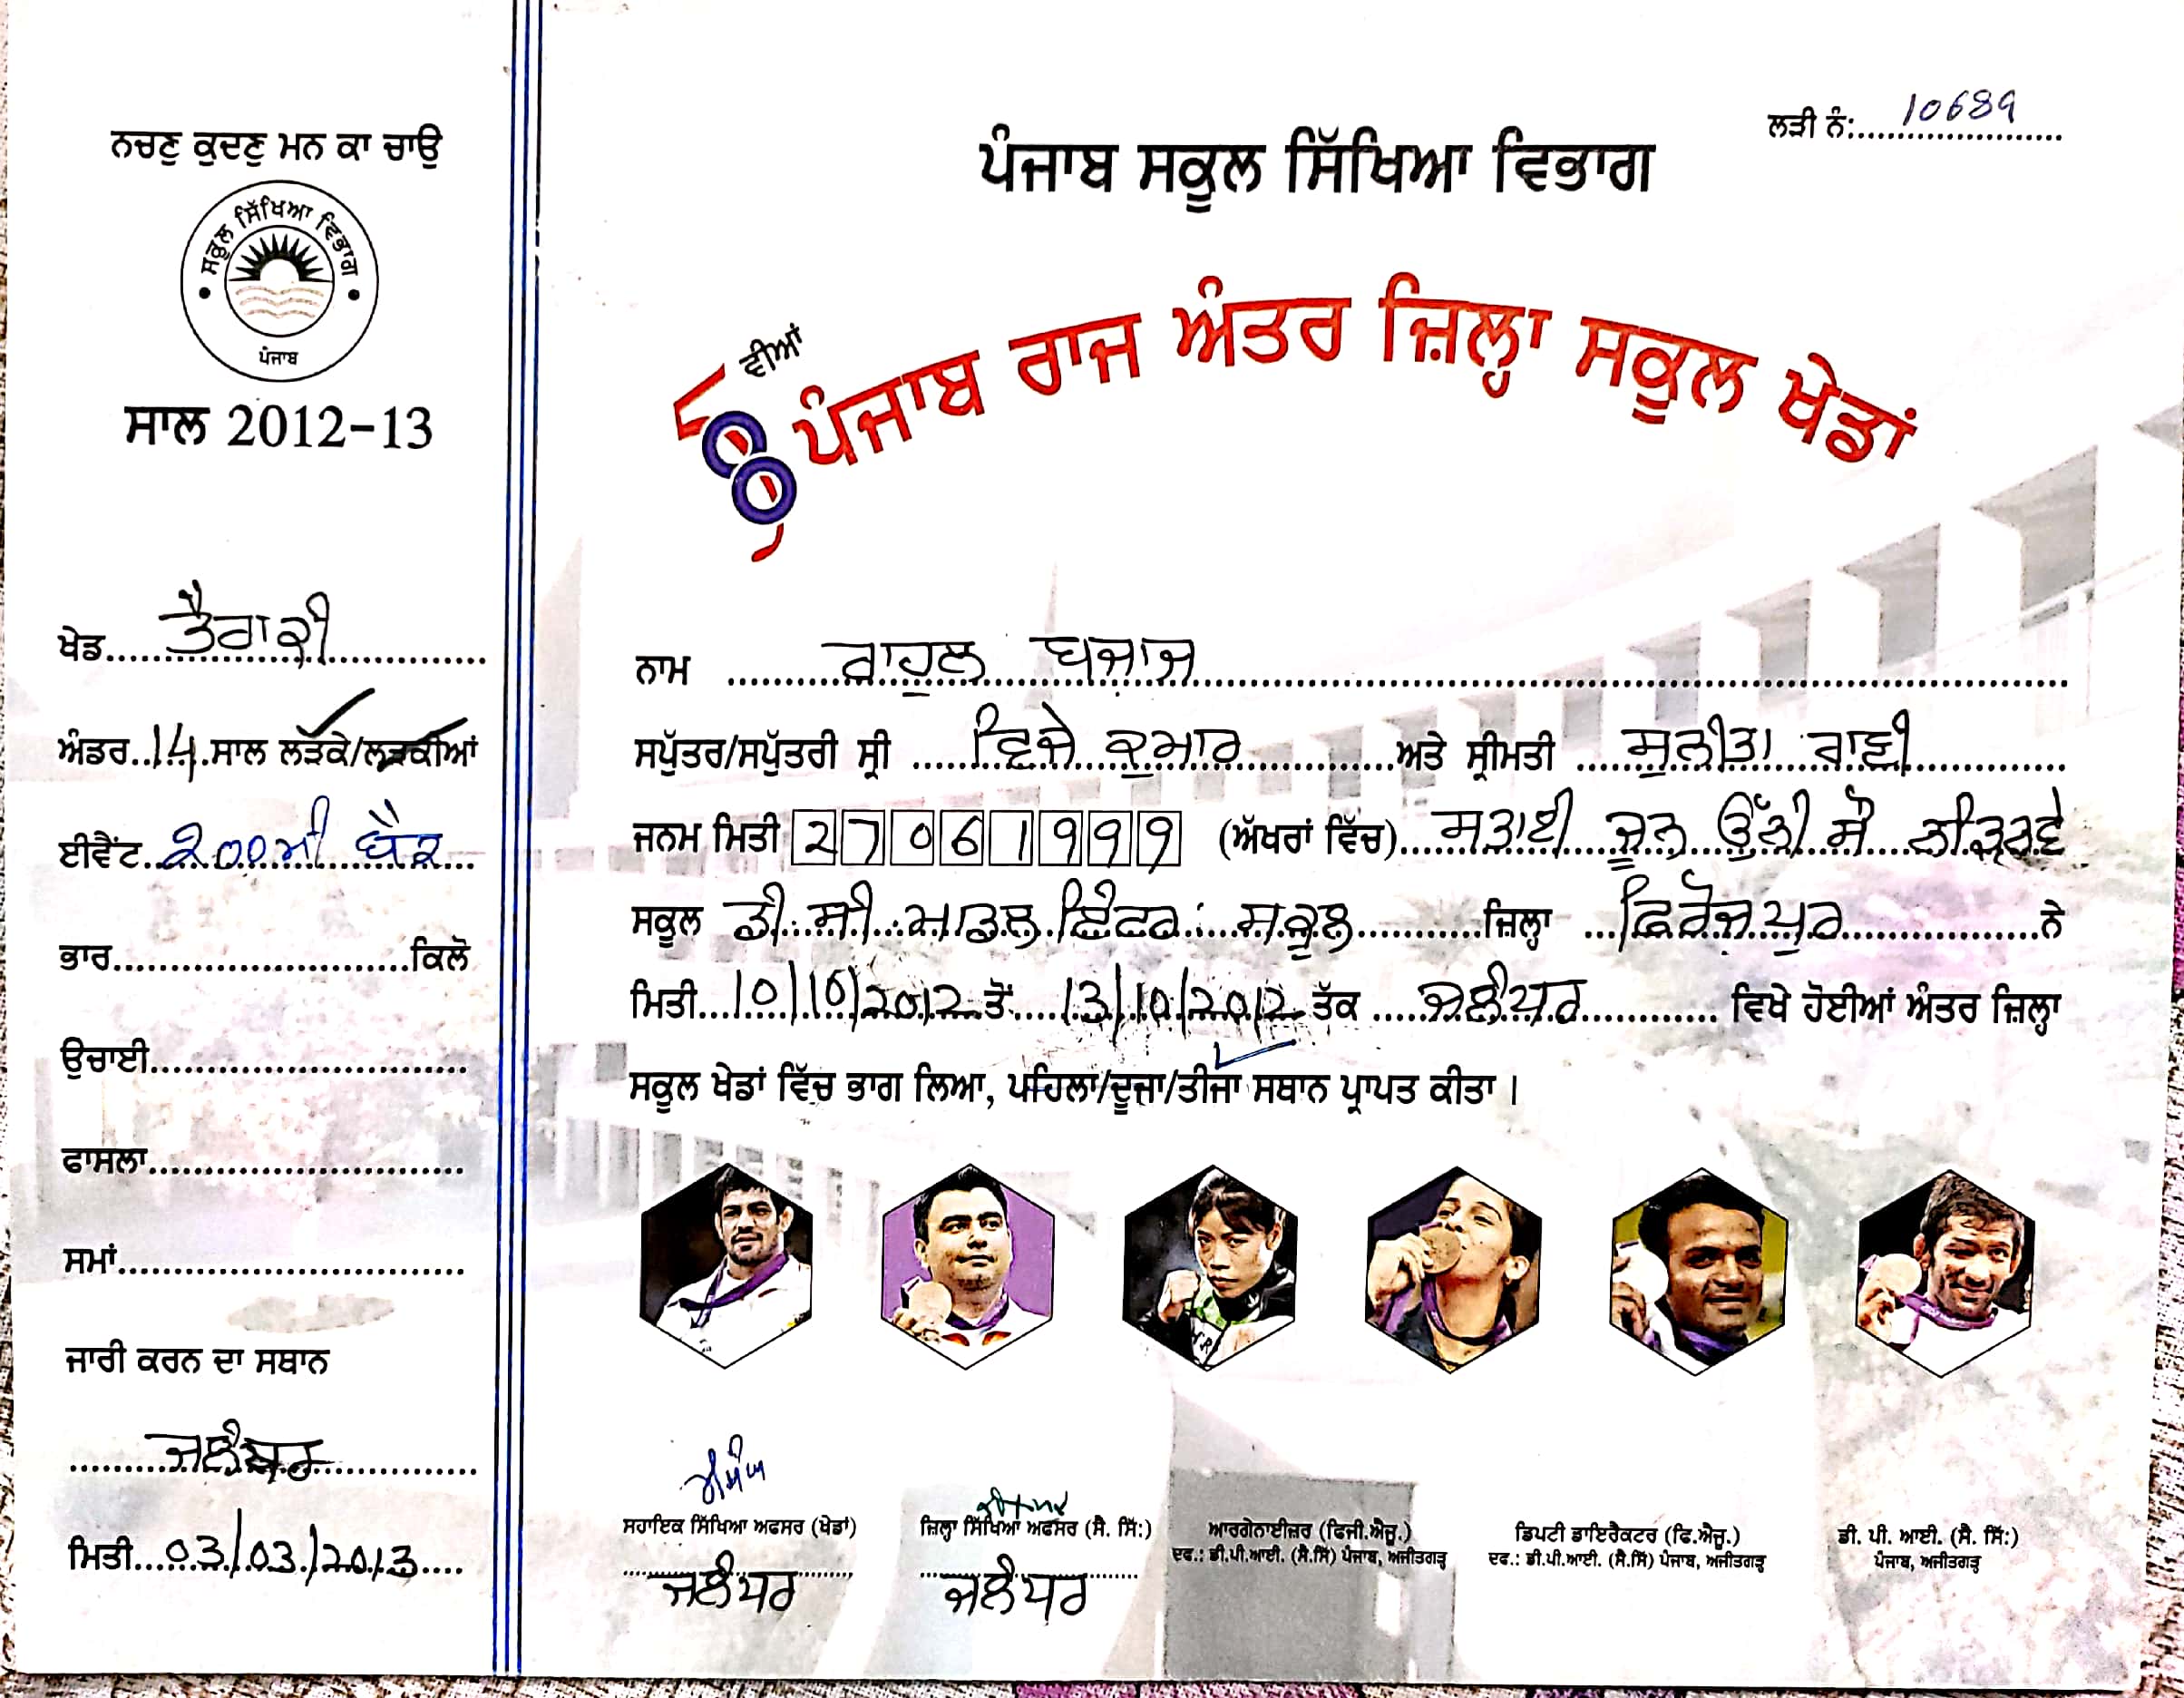 ਨਚਣੁ ਕੁਦਣੁ ਮਨ ਕਾ ਚਾਉ
ਸਕੂਲ ਸਿੱਖਿਆ ਵਿਭਾਗ
ਪੰਜਾਬ
ਸਾਲ 2012-13
ਖੇਡ ਤੈਰਾਕੀ
ਅੰਡਰ 14 ਸਾਲ ਲੜਕੇ/ਲੜਕੀਆਂ
ਈਵੈਂਟ 200ਮੀ ਬੈਕ
ਭਾਰ ਕਿਲੋ
ਉਚਾਈ
ਫਾਸਲਾ
ਸਮਾਂ
ਜਾਰੀ ਕਰਨ ਦਾ ਸਥਾਨ
ਜਲੰਧਰ
ਮਿਤੀ 03/03/2013
ਲੜੀ ਨੰ: 10689
ਪੰਜਾਬ ਸਕੂਲ ਸਿੱਖਿਆ ਵਿਭਾਗ
58 ਵੀਆਂ ਪੰਜਾਬ ਰਾਜ ਅੰਤਰ ਜ਼ਿਲ੍ਹਾ ਸਕੂਲ ਖੇਡਾਂ
ਨਾਮ ਰਾਹੁਲ ਬਜਾਜ
ਸਪੁੱਤਰ/ਸਪੁੱਤਰੀ ਸ਼੍ਰੀ ਵਿਜੇ ਕੁਮਾਰ ਅਤੇ ਸ਼੍ਰੀਮਤੀ ਸੁਨੀਤਾ ਰਾਣੀ
ਜਨਮ ਮਿਤੀ 27061999 (ਅੱਖਰਾਂ ਵਿੱਚ) ਸਤਾਈ ਜੂਨ ਉੱਨੀ ਸੌ
ਸਕੂਲ ਡੀ.ਸੀ ਮਾਡਲ ਇੰਟਰ: ਸਕੂਲ ਜ਼ਿਲ੍ਹਾ ਫਿਰੋਜ਼ਪੁਰ ਨੇ
ਮਿਤੀ 10/10/2012 ਤੋਂ 13/10/2012 ਤੱਕ ਜਲੰਧਰ ਵਿਖੇ ਹੋਈਆਂ ਅੰਤਰ ਜ਼ਿਲ੍ਹਾ
ਸਕੂਲ ਖੇਡਾਂ ਵਿੱਚ ਭਾਗ ਲਿਆ, ਪਹਿਲਾ/ਦੂਜਾ/ਤੀਜਾ ਸਥਾਨ ਪ੍ਰਾਪਤ ਕੀਤਾ।
ਸਹਾਇਕ ਸਿੱਖਿਆ ਅਫਸਰ (ਖੇਡਾਂ)
ਜਲੰਧਰ
ਜ਼ਿਲ੍ਹਾ ਸਿੱਖਿਆ ਅਫਸਰ (ਸੈ. ਸਿੱ:)
ਜਲੰਧਰ
ਆਰਗੇਨਾਈਜ਼ਰ (ਫਿਜੀ.ਐਜੂ.)
ਦਫ.: ਡੀ.ਪੀ.ਆਈ. (ਸੈ.ਸਿੱ) ਪੰਜਾਬ, ਅਜੀਤਗੜ੍ਹ
ਡਿਪਟੀ ਡਾਇਰੈਕਟਰ (ਫਿ.ਐਜੂ.)
ਦਫ.: ਡੀ.ਪੀ.ਆਈ. (ਸੈ.ਸਿੱ) ਪੰਜਾਬ, ਅਜੀਤਗੜ੍ਹ
ਡੀ. ਪੀ. ਆਈ. (ਸੈ. ਸਿੱ:)
ਪੰਜਾਬ, ਅਜੀਤਗੜ੍ਹ